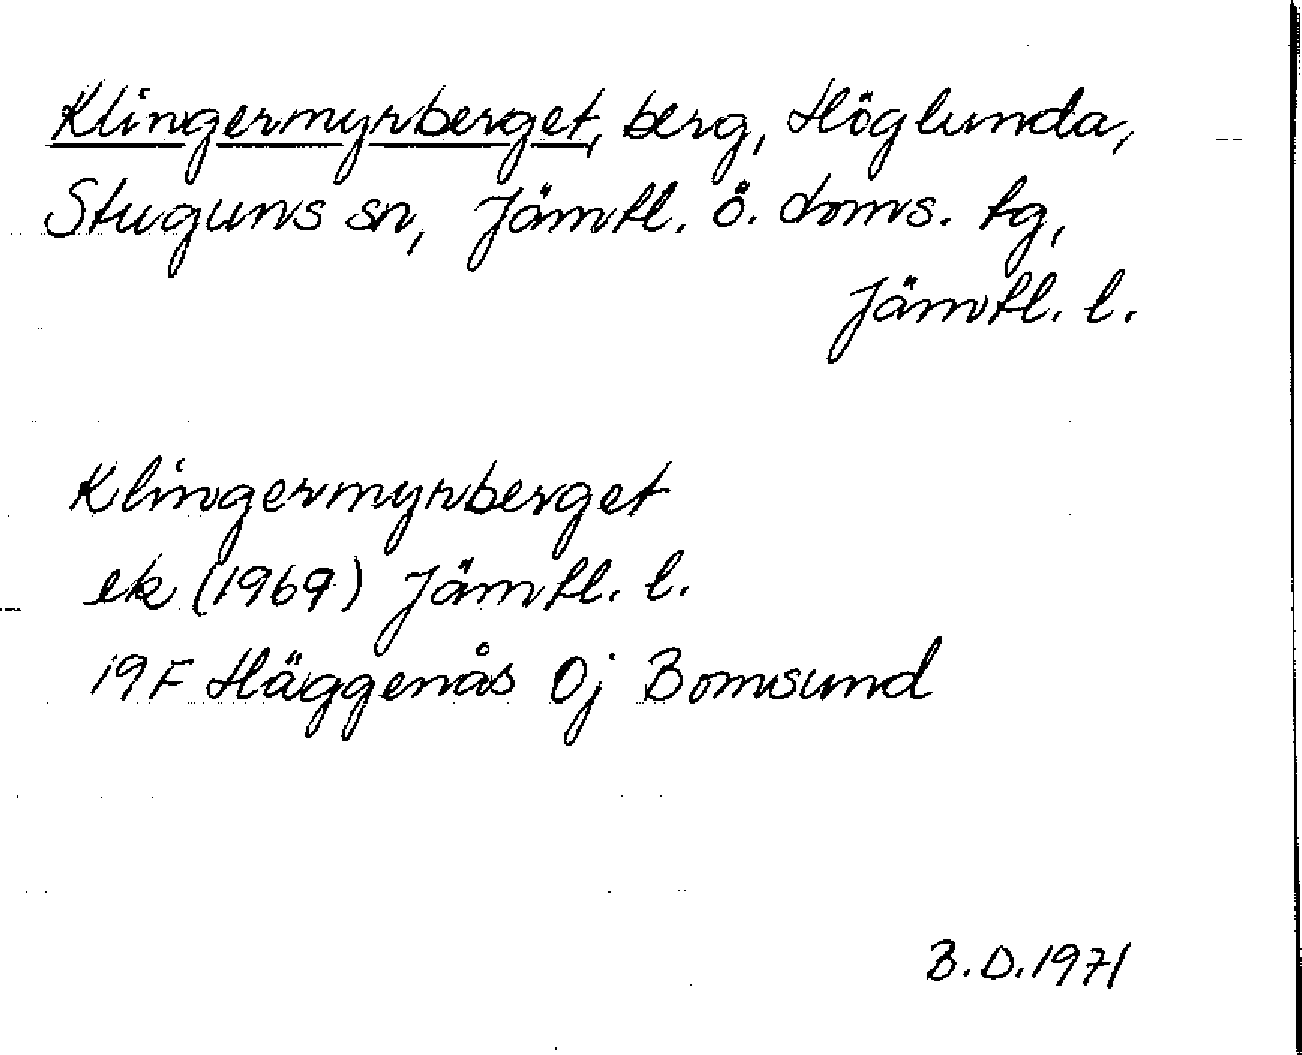 Klingermyrberget, berg, Höglunda,
Stuguns sn, Jämtl. ö. doms. tg,
Jämtl. l.
Klingermyrberget
ek (1969) Jämtl. l.
19F Häggenås 0j Bomsund
B.D. 1971